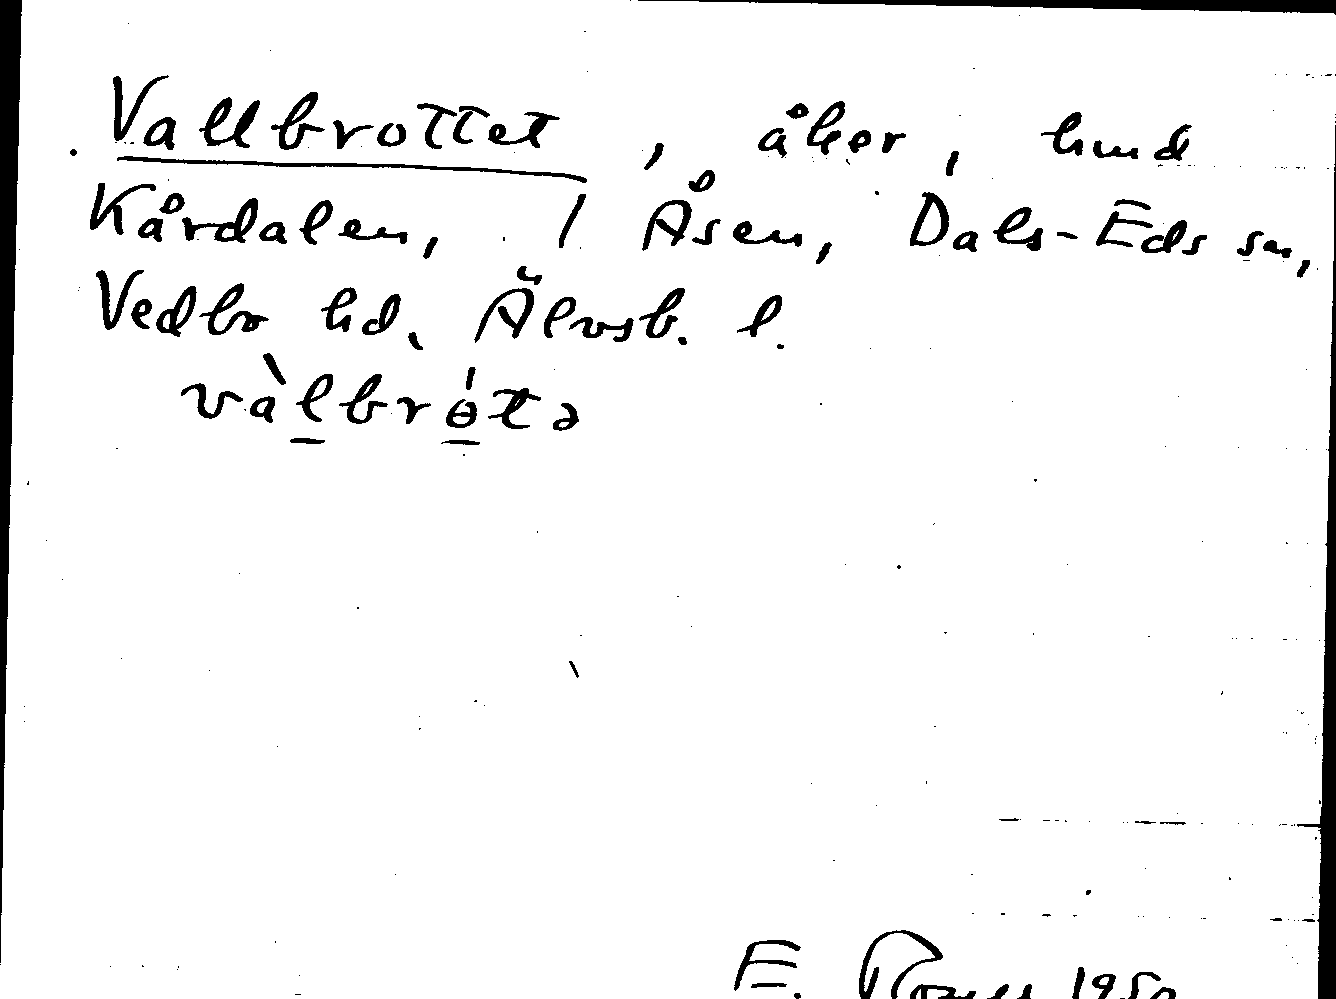 Vallbrottet, åker, hmd
Kårdalen, 1 Åsen, Dals-Eds sn,
Vedbo hd. Älvsb. l.
vàlbrɵ́tə
E. 195